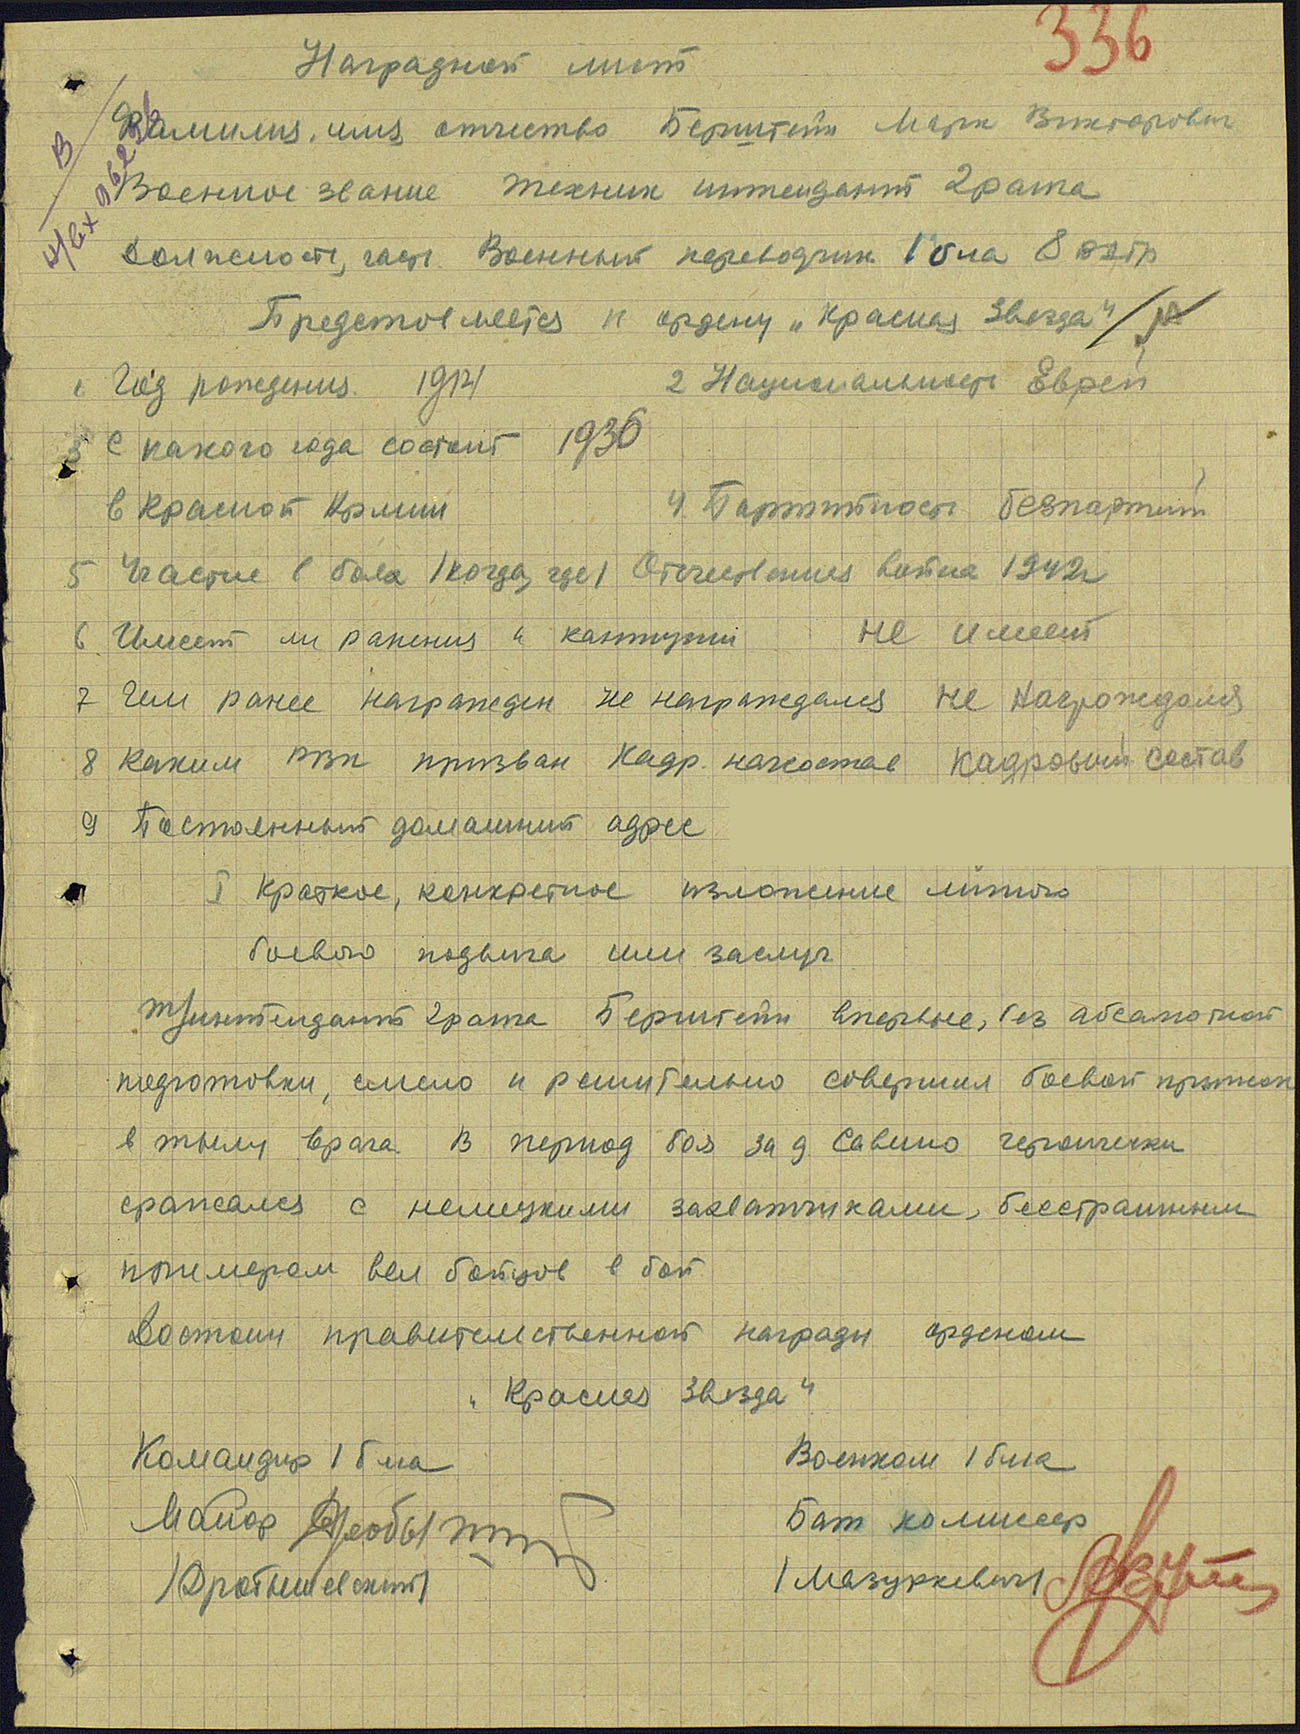 336
Наградной лист
Фамилия, имя отчество Бернштейн Марк Викторович
Военное звание техник интендант 2 ранга
Должность, часть. Военный переводчик 1 б-на 8 вдбр
Представляется к ордену „Красная Звезда“
1 Год рождения. 1914 2 Национальность Еврей
3 С какого года состоит 1936
в Красной Армии 4. Партийность беспартийн
5 Участие в боях /когда, где/ Отечественная война 1942г
6 Имеет ли ранения и контузии не имеет
7 Чем ранее награжден не награждался не награждался
8 Каким РВК призван Кадр. начсостав кадровый состав
9 Постоянный домашний адрес
I Краткое, конкретное изложение личного
боевого подвига или заслуг
т/интендант 2 ранга Бернштейн впервые, без абсолютной
подготовки, смело и решительно совершил боевой прыжок
в тылу врага. В период боя за д Савино героически
сражался с немецкими захватчиками, бесстрашным
примером вел бойцов в бой.
Достоин правительственной награды орденом
„Красная Звезда“
Командир 1 б-на Военком 1 б-на
Майор Бат комиссар
/Дробышевский/ /Мазуркевич/